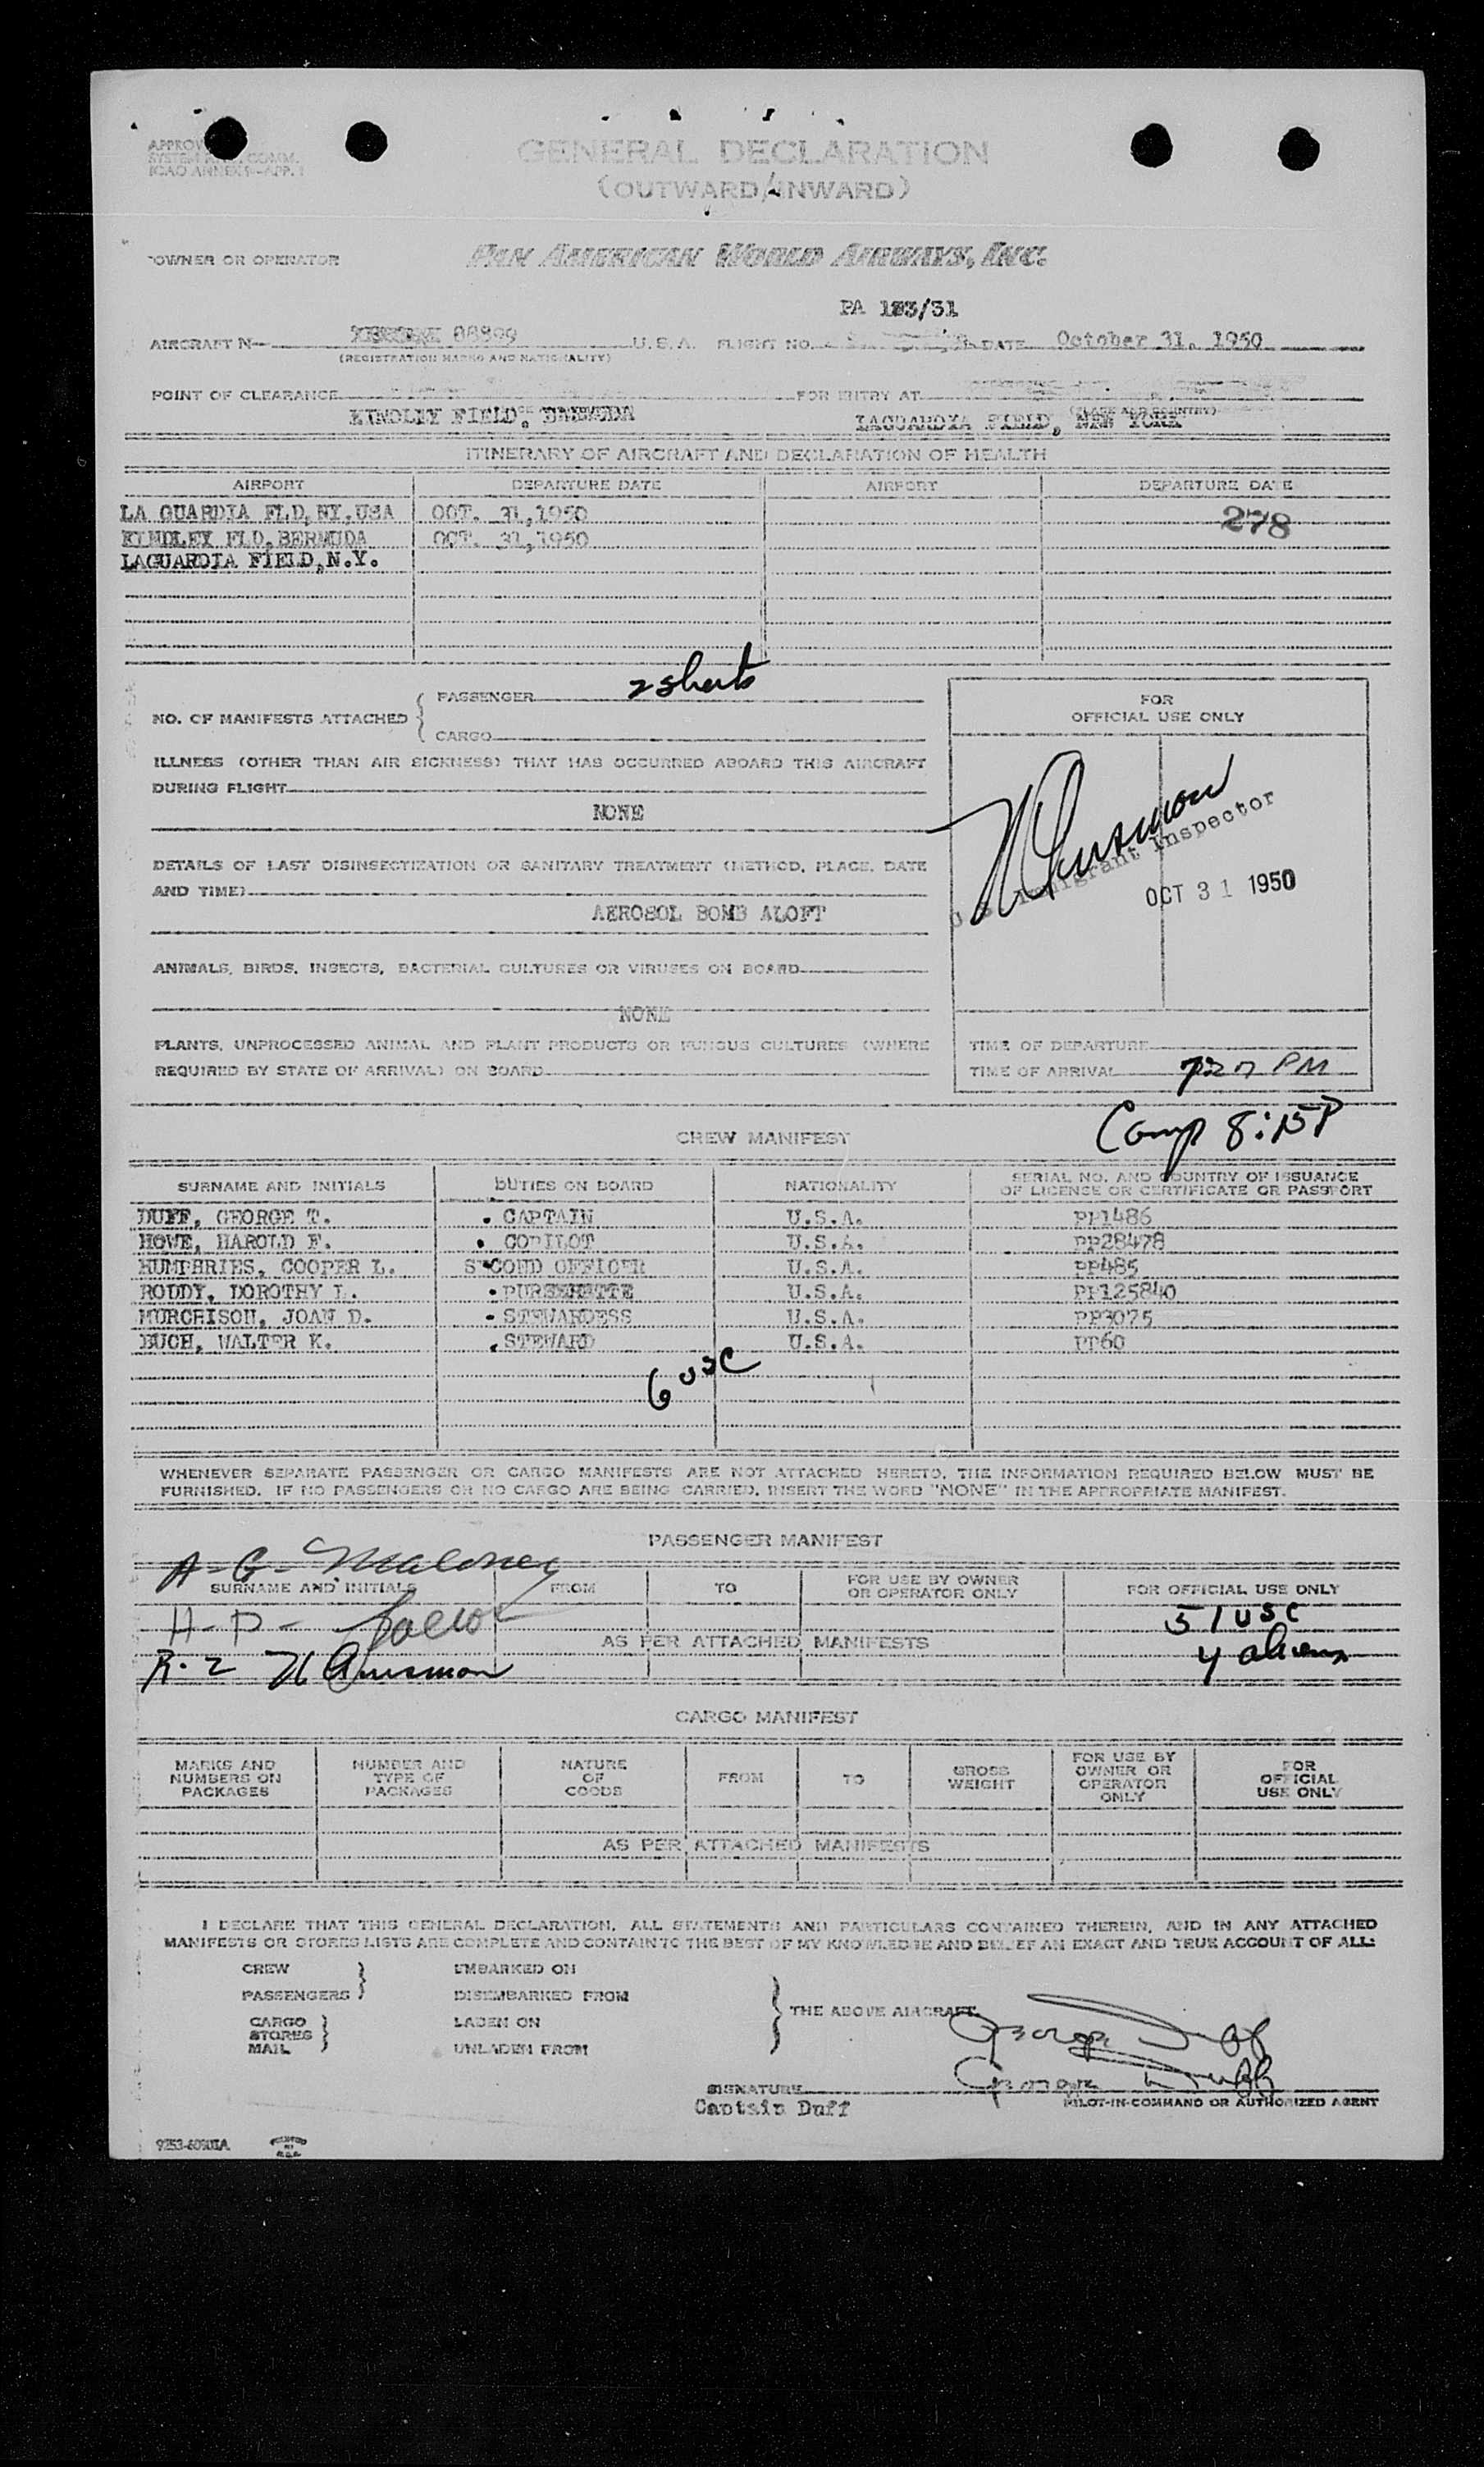 GENERAL DECLARATION
(OUTWARD/INWARD)
ICAO ANNEX 9—APP. 1
OWNER OR OPERATOR PAN AMERICAN WORLD AIRWAYS, INC.
PA 123/31
AIRCRAFT N— 88899 U.S.A. FLIGHT NO. DATE October 31, 1950
(REGISTRATION MARKS AND NATIONALITY)
POINT OF CLEARANCE FOR ENTRY AT
(PLACE AND COUNTRY)
KINDLEY FIELD, BERMUDA LAGUARDIA FIELD, NEW YORK
ITINERARY OF AIRCRAFT AND DECLARATION OF HEALTH
AIRPORT DEPARTURE DATE AIRPORT DEPARTURE DATE
LA GUARDIA FLD, NY, USA OCT. 31, 1950 278
KINDLEY FLD, BERMUDA OCT. 31, 1950
LAGUARDIA FIELD, N.Y.
NO. OF MANIFESTS ATTACHED { PASSENGER 2 sheets
CARGO
FOR
OFFICIAL USE ONLY
ILLNESS (OTHER THAN AIR SICKNESS) THAT HAS OCCURRED ABOARD THIS AIRCRAFT
DURING FLIGHT
NONE
DETAILS OF LAST DISINSECTIZATION OR SANITARY TREATMENT (METHOD, PLACE, DATE
AND TIME)
AEROSOL BOMB ALOFT
U.S. Immigrant Inspector
OCT 31 1950
ANIMALS, BIRDS, INSECTS, BACTERIAL CULTURES OR VIRUSES ON BOARD
NONE
PLANTS, UNPROCESSED ANIMAL AND PLANT PRODUCTS OR FUNGUS CULTURES (WHERE
REQUIRED BY STATE OF ARRIVAL) ON BOARD
TIME OF DEPARTURE
TIME OF ARRIVAL 727 PM
Comp 8:15P
CREW MANIFEST
SURNAME AND INITIALS DUTIES ON BOARD NATIONALITY SERIAL NO. AND COUNTRY OF ISSUANCE
OF LICENSE OR CERTIFICATE OR PASSPORT
DUFF, GEORGE T. CAPTAIN U.S.A. PP1486
HOWE, HAROLD F. COPILOT U.S.A. PP28478
HUMPHRIES, COOPER L. SECOND OFFICER U.S.A. PP485
RODDY, DOROTHY L. PURSERETTE U.S.A. PP125840
MURCHISON, JOAN D. STEWARDESS U.S.A. PP3075
BUCH, WALTER K. STEWARD U.S.A. PP60
6 USC
WHENEVER SEPARATE PASSENGER OR CARGO MANIFESTS ARE NOT ATTACHED HERETO, THE INFORMATION REQUIRED BELOW MUST BE
FURNISHED. IF NO PASSENGERS OR NO CARGO ARE BEING CARRIED, INSERT THE WORD "NONE" IN THE APPROPRIATE MANIFEST.
PASSENGER MANIFEST
A-G- Maloney
SURNAME AND INITIALS FROM TO FOR USE BY OWNER
OR OPERATOR ONLY FOR OFFICIAL USE ONLY
H-D- 51 USC
AS PER ATTACHED MANIFESTS
R-2 4 aliens
CARGO MANIFEST
MARKS AND
NUMBERS ON
PACKAGES NUMBER AND
TYPE OF
PACKAGES NATURE
OF
GOODS FROM TO GROSS
WEIGHT FOR USE BY
OWNER OR
OPERATOR
ONLY FOR
OFFICIAL
USE ONLY
AS PER ATTACHED MANIFESTS
I DECLARE THAT THIS GENERAL DECLARATION, ALL STATEMENTS AND PARTICULARS CONTAINED THEREIN, AND IN ANY ATTACHED
MANIFESTS OR STORES LISTS ARE COMPLETE AND CONTAIN TO THE BEST OF MY KNOWLEDGE AND BELIEF AN EXACT AND TRUE ACCOUNT OF ALL:
CREW EMBARKED ON
PASSENGERS DISEMBARKED FROM
THE ABOVE AIRCRAFT
CARGO LADEN ON
STORES
MAIL UNLADEN FROM
George Duff
George Duff
SIGNATURE
Captain Duff PILOT-IN-COMMAND OR AUTHORIZED AGENT